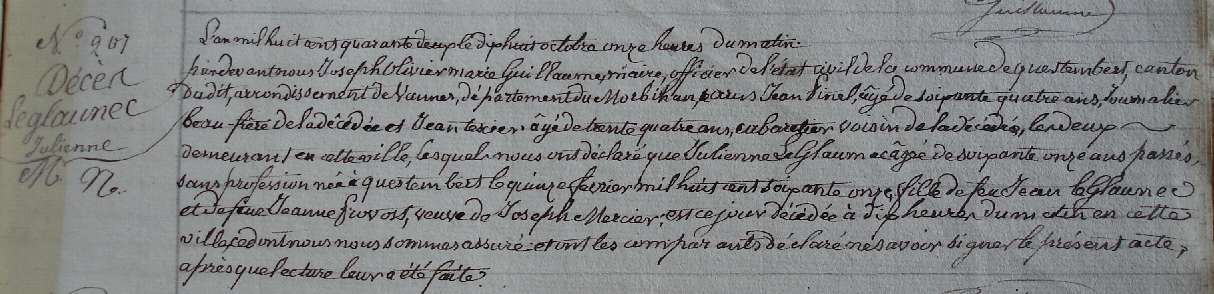 Guillaume
N.º 207
Décès
Leglaunec
Julienne
M. No.
L'an mil huit cens quarante deux le dix huit octobre onze heures du matin.
pardevant nous Joseph Olivier marie Guillaume, maire, officier de l'état civil de la commune de questembert, canton
dudit, arrondissement de Vannes, département du Morbihan, parus Jean Vinel, âgé de soixante quatre ans, Journalier
beau-frère de la décédée et Jean texier âgé de trente quatre ans, cabaretier voisin de la décédée, les deux
demeurant en cette ville, lesquels nous ont déclaré que Julienne LeGlaunec âgée de soixante onze ans passés,
sans profession née à questembert le quinze fevrier mil huit cent soixante onze, fille de feu Jean leGlaunec
et de feue Jeanne Provost, veuve de Joseph Mercier, est ce jour décédée à dix heures du matin en cette
ville, ce dont nous nous sommes assuré et ont les comparants déclaré ne savoir signer le présent acte,
après que lecture leur a été faite.